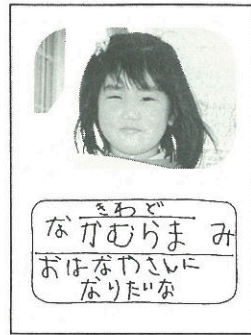 きわど
なかむらまみ
おはなやさんに
なりたいな